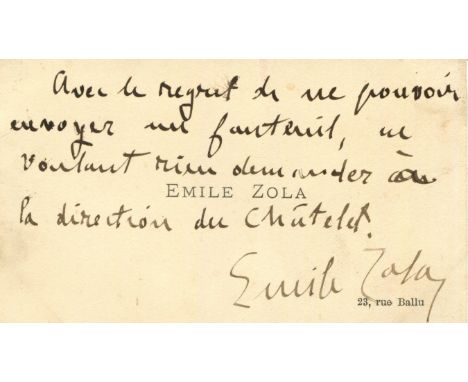 Avec le regret de ne pouvoir
envoyer un fauteuil, ne
voulant rien demander à
EMILE ZOLA
la direction du Châtelet.
Emile Zola
23, rue Ballu